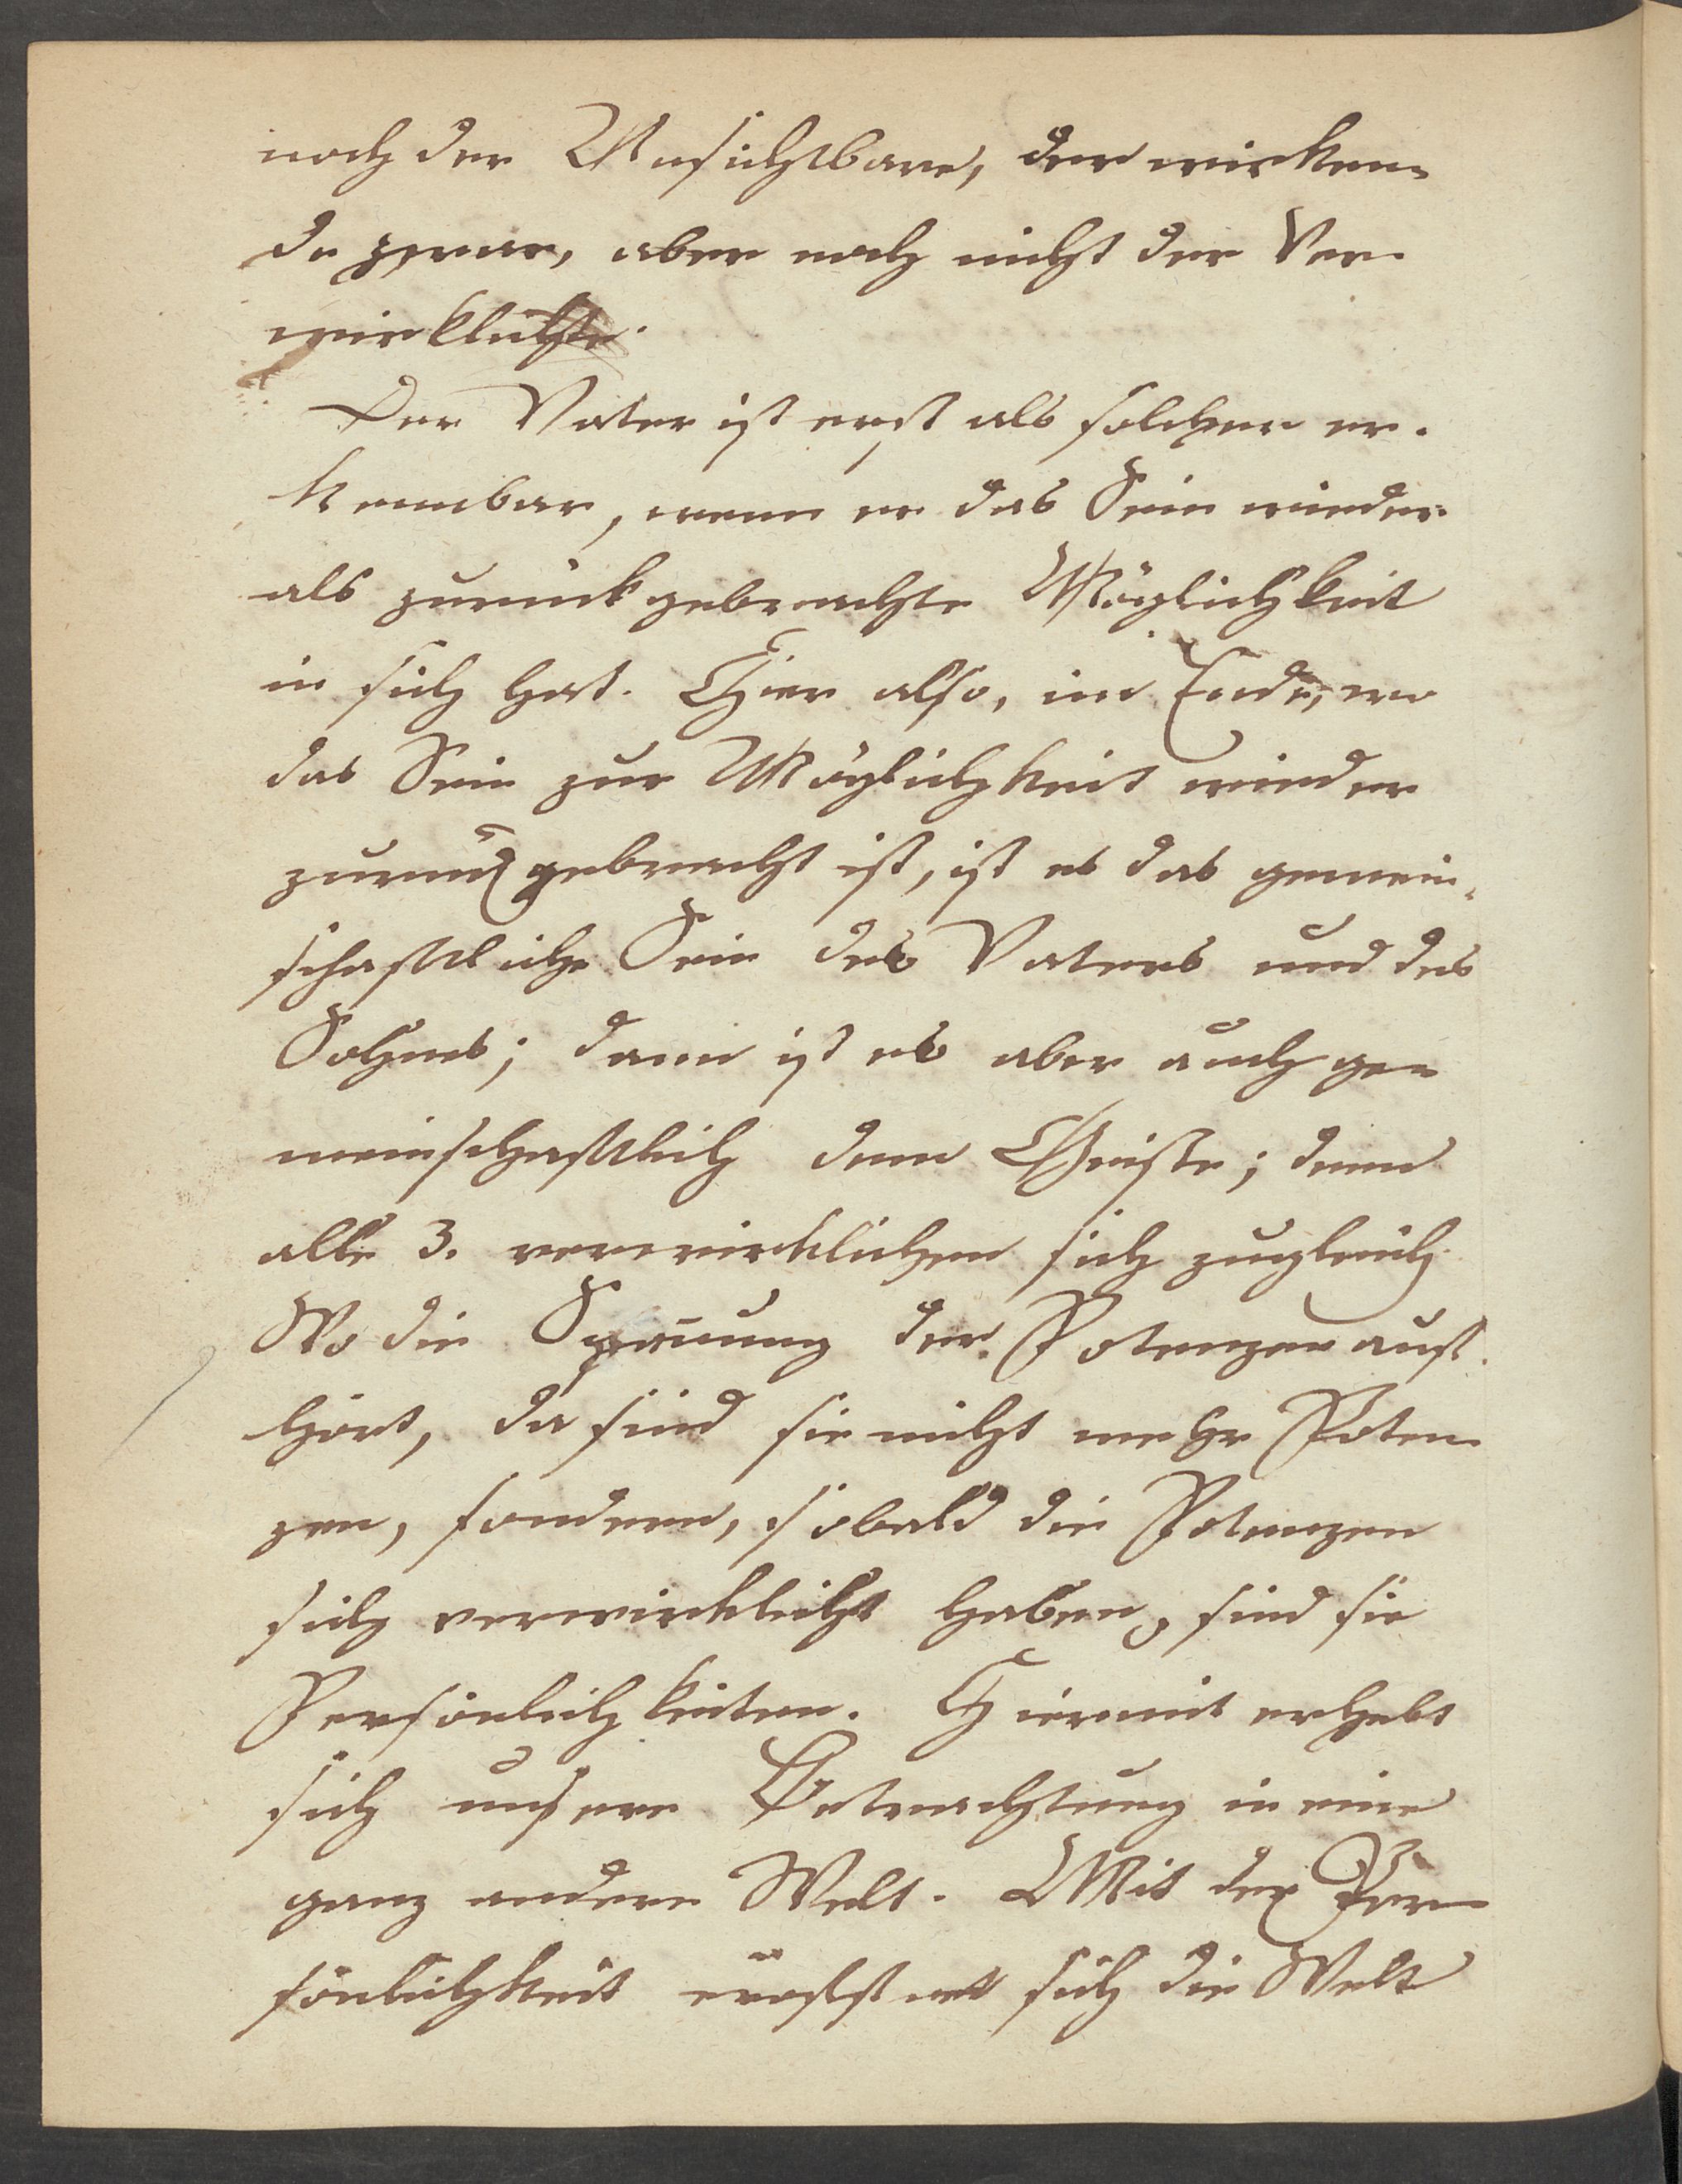 noch der Unsichtbare, der wirken-
de zwar, aber noch nicht der Ver-
wirklichte.
Der Vater ist erst als solcher er-
kennbar, wenn er das Sein wieder
als zurückgebrachte Möglichkeit
in sich hat. Hier also, im Ende, wo
das Sein zur Möglichkeit wieder
zurückgebracht ist, ist es das gemein-
schaftliche Sein des Vaters und des
Sohnes; dann ist es aber auch ge-
meinschaftlich dem Geiste; denn
alle 3. verwirklichen sich zugleich.
Wo die Spannung der Potenzen auf-
hört, da sind sie nicht mehr Poten-
zen, sondern, sobald die Potenzen
sich verwirklicht haben, sind sie
Persönlichkeiten. Hiermit erhebt
sich unsere Betrachtung in eine
ganz andere Welt. Mit der Per-
sönlichkeit eröffnet sich die Welt